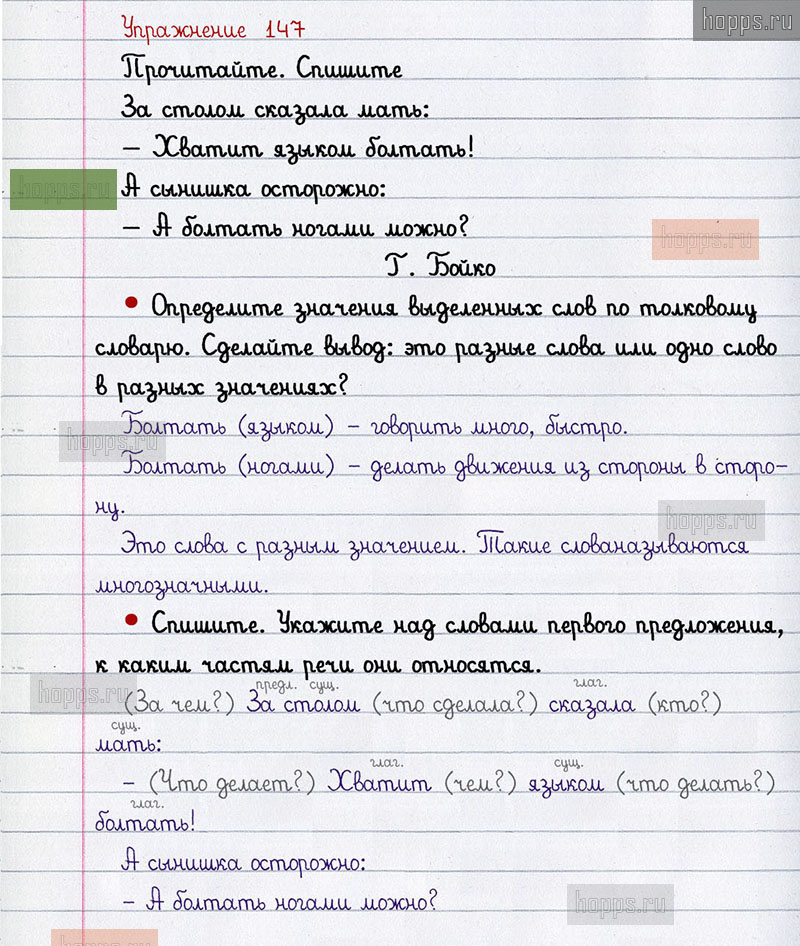 hopps.ru
Упражнение 147
Прочитайте. Спишите
За столом сказала мать:
– Хватит языком болтать!
hopps.ru
А сынишка осторожно:
– А болтать ногами можно?
hopps.ru
Г. Бойко
• Определите значения выделенных слов по толковому
словарю. Сделайте вывод: это разные слова или одно слово
в разных значениях?
Болтать (языком) – говорить много, быстро.
hopps.ru
Болтать (ногами) – делать движения из стороны в сторо-
ну.
hopps.ru
Это слова с разным значением. Такие словaназываются
многозначными.
• Спишите. Укажите над словами первого предложения,
к каким частям речи они относятся.
hopps.ru
предл. сущ. глаг.
(За чем?) За столом (что сделала?) сказала (кто?)
сущ.
мать:
глаг. сущ.
– (Что делает?) Хватит (чем?) языком (что делать?)
глаг.
болтать!
А сынишка осторожно:
– А болтать ногами можно?
hopps.ru
hopps.ru